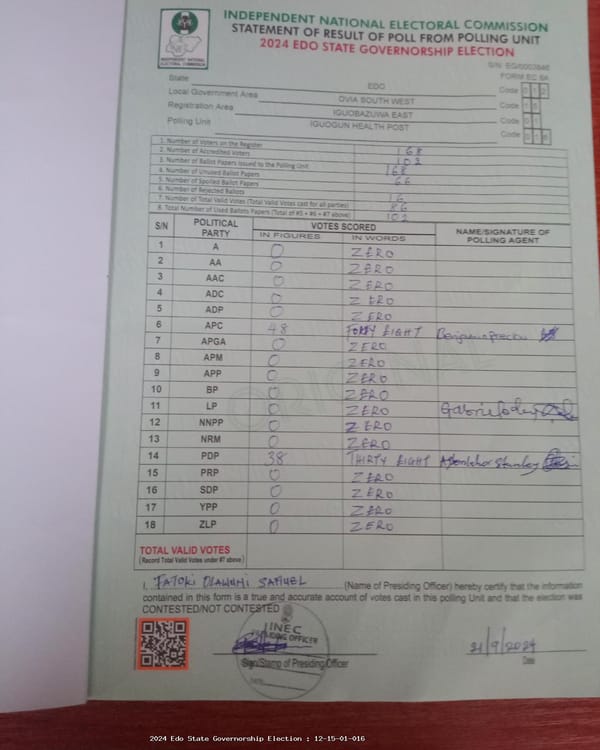 INDEPENDENT NATIONAL ELECTORAL COMMISSION
STATEMENT OF RESULT OF POLL FROM POLLING UNIT
2024 EDO STATE GOVERNORSHIP ELECTION
INDEPENDENT NATIONAL ELECTORAL COMMISSION
FORM EC 8A
State EDO Code 0 1 2
Local Government Area OVIA SOUTH WEST Code 1 5
Registration Area IGUOBAZUWA EAST Code 0 1
Polling Unit IGUOGUN HEALTH POST Code 0 1 6
1. Number of Voters on the Register 168
2. Number of Accredited Voters 102
3. Number of Ballot Papers Issued to the Polling Unit 168
4. Number of Unused Ballot Papers 66
5. Number of Spoiled Ballot Papers
6. Number of Rejected Ballots 16
7. Number of Total Valid Votes (Total Valid Votes cast for all parties) 86
8. Total Number of Used Ballots Papers (Total of #5 + #6 + #7 above) 102
S/N POLITICAL PARTY VOTES SCORED NAME/SIGNATURE OF POLLING AGENT
IN FIGURES IN WORDS
1 A 0 ZERO
2 AA 0 ZERO
3 AAC 0 ZERO
4 ADC 0 ZERO
5 ADP 0 ZERO
6 APC 48 FORTY EIGHT
7 APGA 0 ZERO
8 APM 0 ZERO
9 APP 0 ZERO
10 BP 0 ZERO
11 LP 0 ZERO
12 NNPP 0 ZERO
13 NRM 0 ZERO
14 PDP 38 THIRTY EIGHT Stanley
15 PRP 0 ZERO
16 SDP 0 ZERO
17 YPP 0 ZERO
18 ZLP 0 ZERO
TOTAL VALID VOTES
(Record Total Valid Votes under #7 above)
I, FATOKI OLAWUMI SAMUEL (Name of Presiding Officer) hereby certify that the information
contained in this form is a true and accurate account of votes cast in this polling Unit and that the election was
CONTESTED/NOT CONTESTED
INEC
PRESIDING OFFICER
21/9/2024
Sign/Stamp of Presiding Officer Date
DATE
2024 Edo State Governorship Election : 12-15-01-016